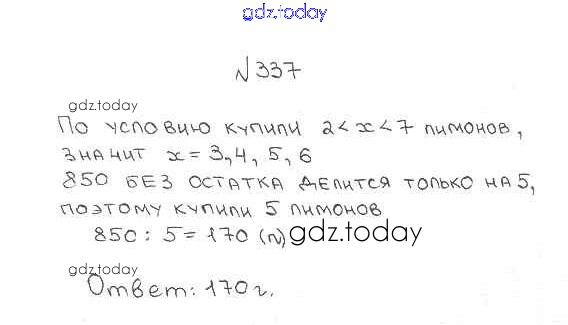 gdz.today
№337
gdz.today
По условию купили 2 < x < 7 лимонов,
значит x = 3, 4, 5, 6
850 без остатка делится только на 5,
поэтому купили 5 лимонов
850 : 5 = 170 (л) gdz.today
gdz.today
Ответ: 170 г.